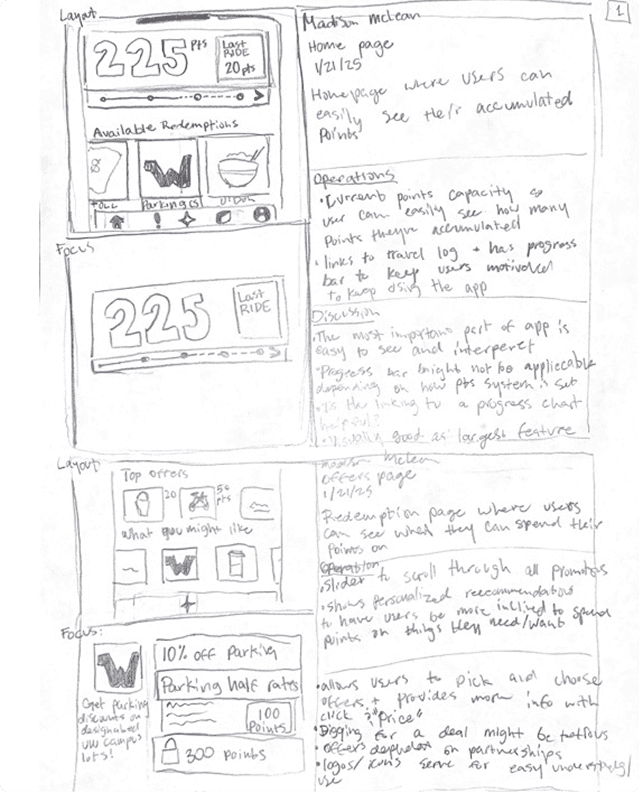 Layout
225 Pts
Last
RIDE
20 pts
Available Redemptions
W
Parking CS
Madison McLean
Home page
1/21/25
Homepage where users can
easily see their accumulated
Points
1
Operations
• Current points capacity so
user can easily see how many
Points they've accumulated
• links to travel log + has progress
bar to keep users motivated
to keep using the app
Focus
225
Last
RIDE
Discussion
• The most important part of app is
easy to see and interperet
• Progress bar might not be
depending on how pts system is set
• Is the linking to a progress chart
helpful?
• Visually good as largest feature
Layout
Top offers
20
50
pts
What you might like
W
Madison McLean
Offers page
1/21/25
Redemption page where users
can see what they can spend their
points on
Operation
• Slider to scroll through all promotions
• shows personalized
to have users be more inclined to spend
points on things they need/want
Focus:
W
Get parking
discounts on
designated
UW campus
lots!
10% off Parking
Parking half rates
100
Points
300 points
• allows users to pick and choose
offers + provides more info with
click & "Price"
• Digging for a deal might be
• offers on partnerships
• logos/icons serve for easy
use